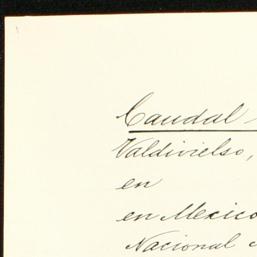 Caudal
Valdivielso,
en
en Mexico
Nacional